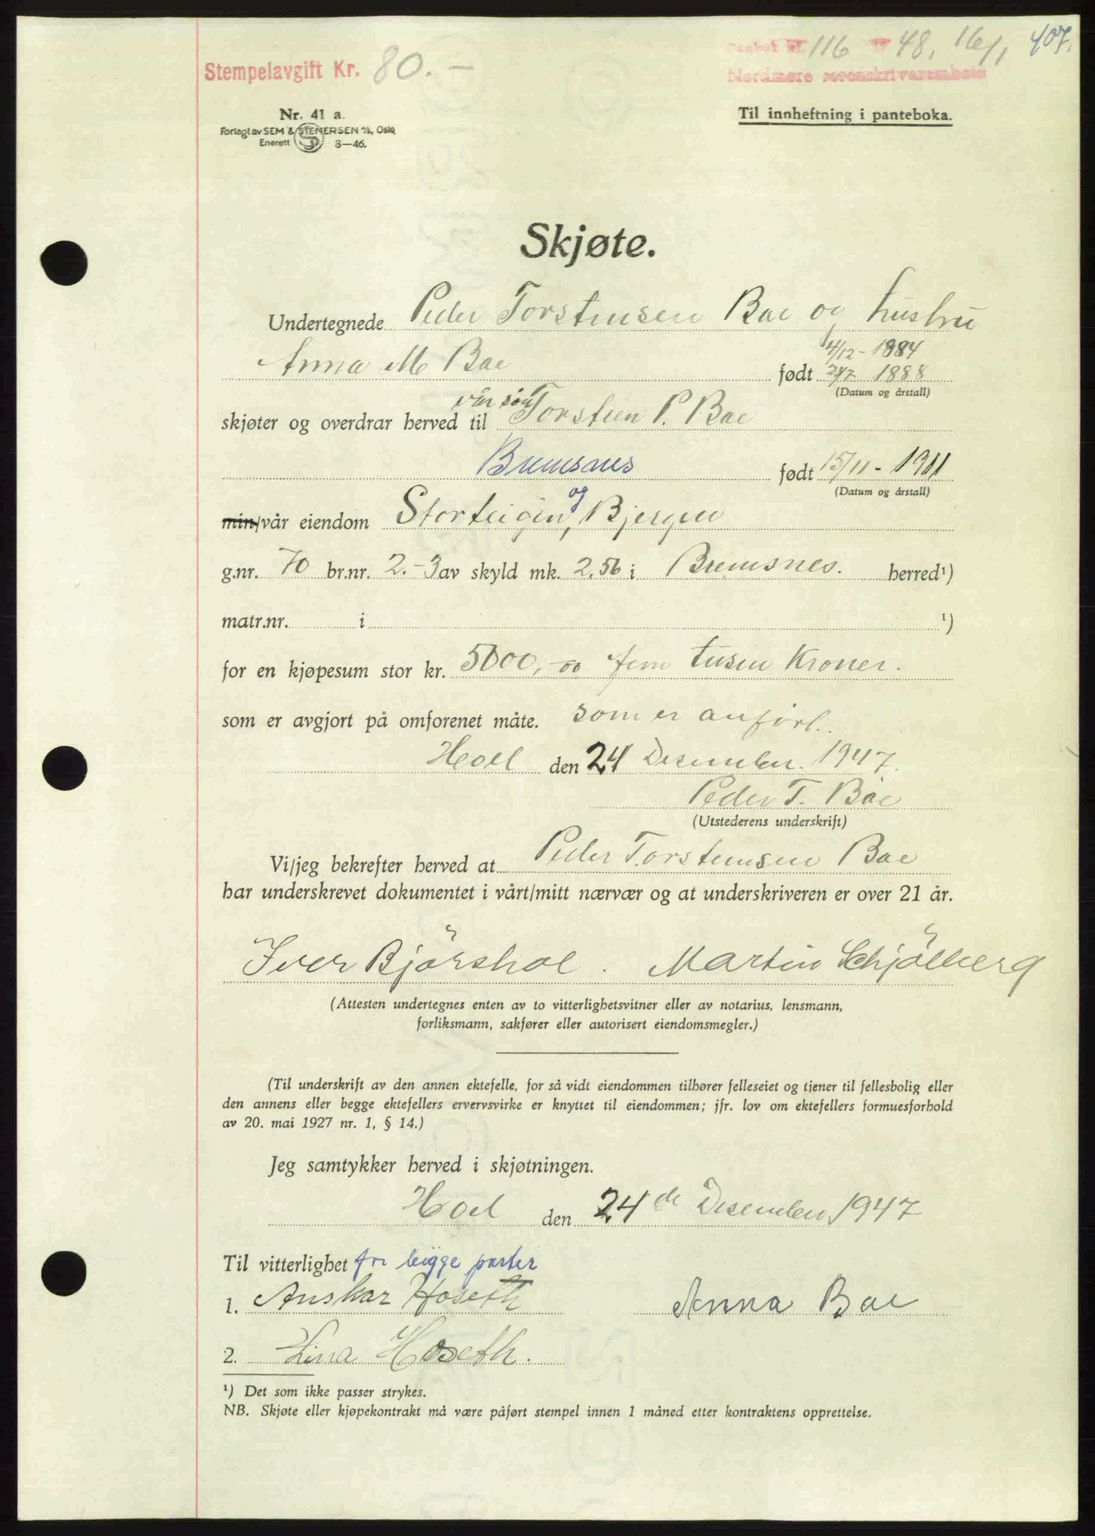 Stempelavgift Kr. 80.—
Dagbok nr. 116 19 48, 16/1 407.
Nordmøre sorenskriverembete
Nr. 41 a.
Forlagt av SEM & STENERSEN A/S, Oslo,
Enerett 8—46.
Til innheftning i panteboka.
Skjøte.
Undertegnede Peder Torstensen Bae og hustru
Anna M Bae født 4/12 - 1884
24/7 1888
(Datum og årstall)
vår søn
skjøter og overdrar herved til Torsten P. Bae
Bremsnes født 15/11 - 1911
(Datum og årstall)
min/vår eiendom Storteigen, og Bjergen
g.nr. 70 br.nr. 2.-3 av skyld mk. 2.56 i Bremsnes. herred¹)
matr.nr. i ¹)
for en kjøpesum stor kr. 5000,-00 fem tusen Kroner.
som er avgjort på omforenet måte. som er anført.
Hoel den 24 Desember 1947.
Peder T. Bae
(Utstederens underskrift)
Vi/jeg bekrefter herved at Peder Torstensen Bae
har underskrevet dokumentet i vårt/mitt nærvær og at underskriveren er over 21 år.
Iver Bjørshol. Martin Schjølberg
(Attesten undertegnes enten av to vitterlighetsvitner eller av notarius, lensmann,
forliksmann, sakfører eller autorisert eiendomsmegler.)
(Til underskrift av den annen ektefelle, for så vidt eiendommen tilhører felleseiet og tjener til fellesbolig eller
den annens eller begge ektefellers ervervsvirke er knyttet til eiendommen; jfr. lov om ektefellers formuesforhold
av 20. mai 1927 nr. 1, § 14.)
Jeg samtykker herved i skjøtningen.
Hoel den 24de Desember 1947
Til vitterlighet for begge parter
1. Anskar Hoseth Anna Bae
2. Lina Hoseth.
¹) Det som ikke passer strykes.
NB. Skjøte eller kjøpekontrakt må være påført stempel innen 1 måned etter kontraktens opprettelse.